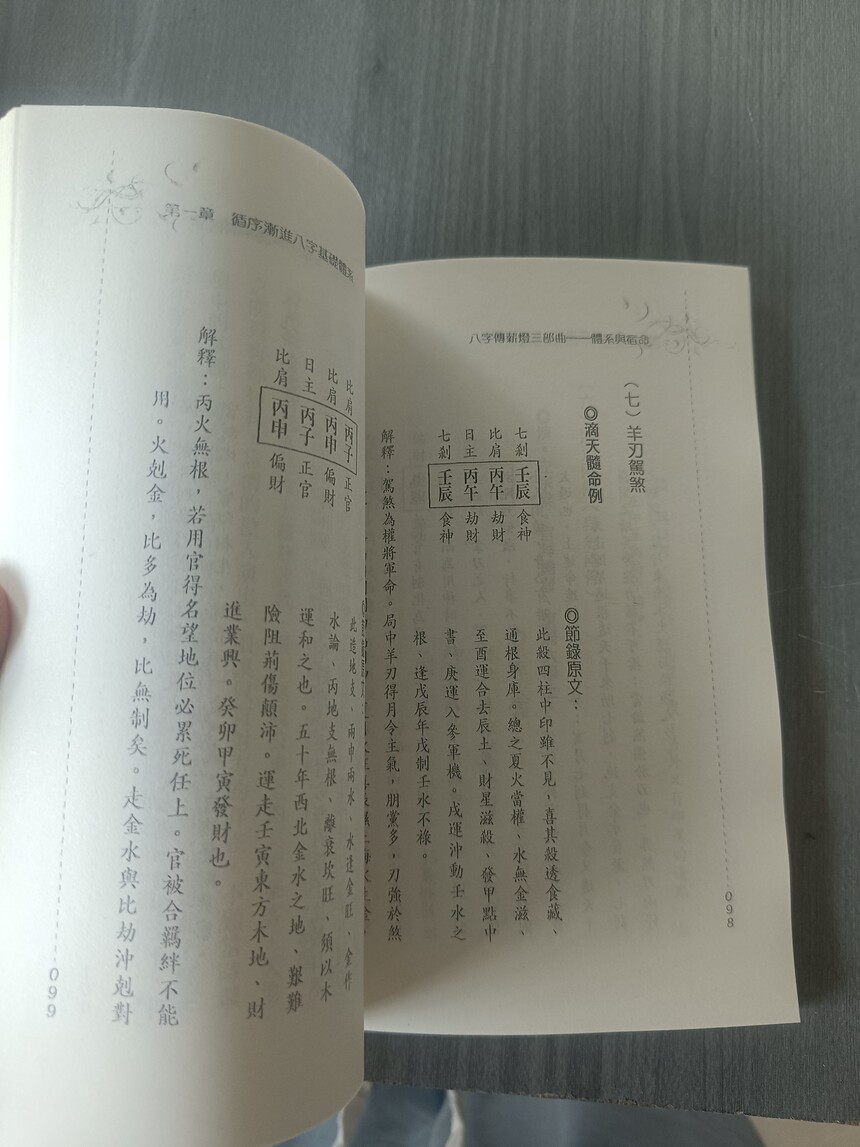 八字傳薪燈三部曲——體系與宿命
（七）羊刃駕煞
◎滴天髓命例
七剎 壬辰 食神
比肩 丙午 劫財
日主 丙午 劫財
七剎 壬辰 食神
◎節錄原文：
此殺四柱中印雖不見、喜其殺透食藏、
通根身庫。總之夏火當權、水無金滋、
至酉運合去辰土、財星滋殺、發甲點中
書、庚運入參軍機。戌運沖動壬水之
根、逢戊辰年戊制壬水不祿。
解釋：駕煞為權將軍命。局中羊刃得月令主氣，朋黨多，刃強於煞
098
第一章 循序漸進八字基礎體系
比肩 丙子 正官
比肩 丙申 偏財
日主 丙子 正官
比肩 丙申 偏財
此造地支、兩申兩水、水逢金旺、金作
水論、丙地支無根、離衰坎旺、須以木
運和之也。五十年西北金水之地、艱難
險阻荊傷顛沛。運走壬寅東方木地、財
進業興。癸卯甲寅發財也。
解釋：丙火無根，若用官得名望地位必累死任上。官被合羈絆不能
用。火剋金，比多為劫，比無制矣。走金水與比劫沖剋對
099